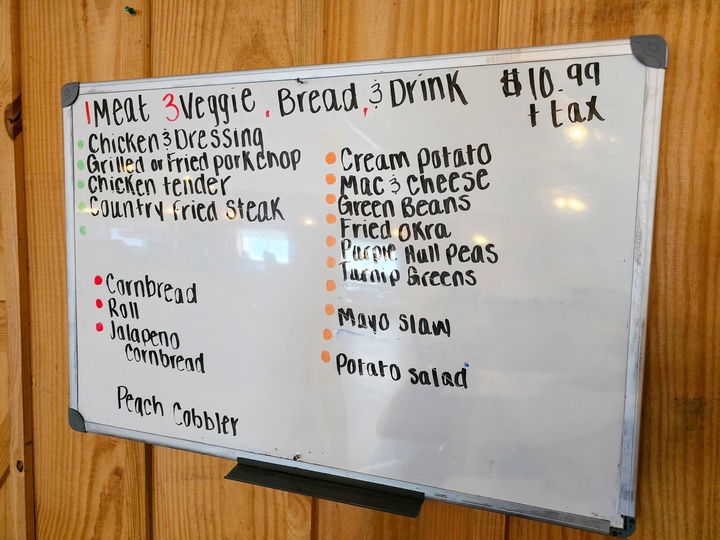 1 Meat 3 Veggie, Bread, & Drink $10.99
+ tax
Chicken & Dressing
Grilled or Fried porkchop
Chicken tender
Country fried steak
Cream potato
Mac & cheese
Green Beans
Fried Okra
Purple Hull Peas
Turnip Greens
Mayo slaw
Potato salad
Cornbread
Roll
Jalapeno
cornbread
Peach Cobbler